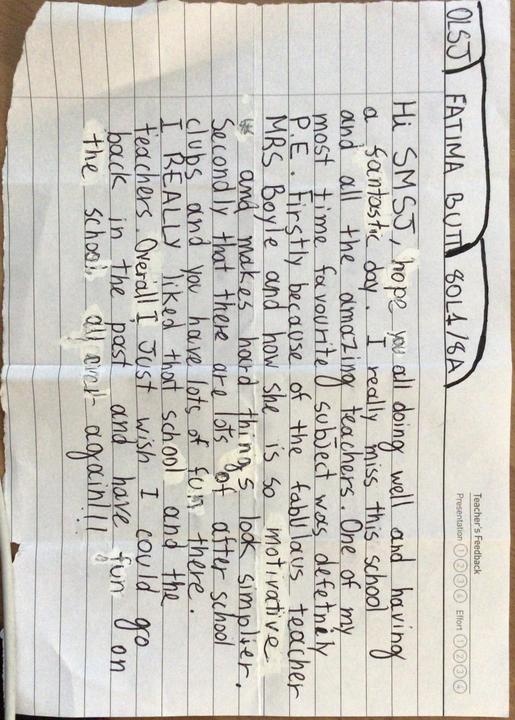 Teacher's Feedback
Presentation 1 2 3 4 Effort 1 2 3 4
OLSJ FATIMA BUTT 8OL4/8A
Hi SMSJ, hope you all doing well and having
a fantastic day. I really miss this school
and all the amazing teachers. One of my
most time favourite subject was defetnely
P.E. Firstly because of the fabulaus teacher
MRS Boyle and how she is so motivative
and makes hard things look simplier.
Secondly that there are lots of after school
clubs and you have lots of fun there.
I REALLY liked that school and the
teachers. Overall I Just wish I could go
back in the past and have fun on
the school all over again!!!